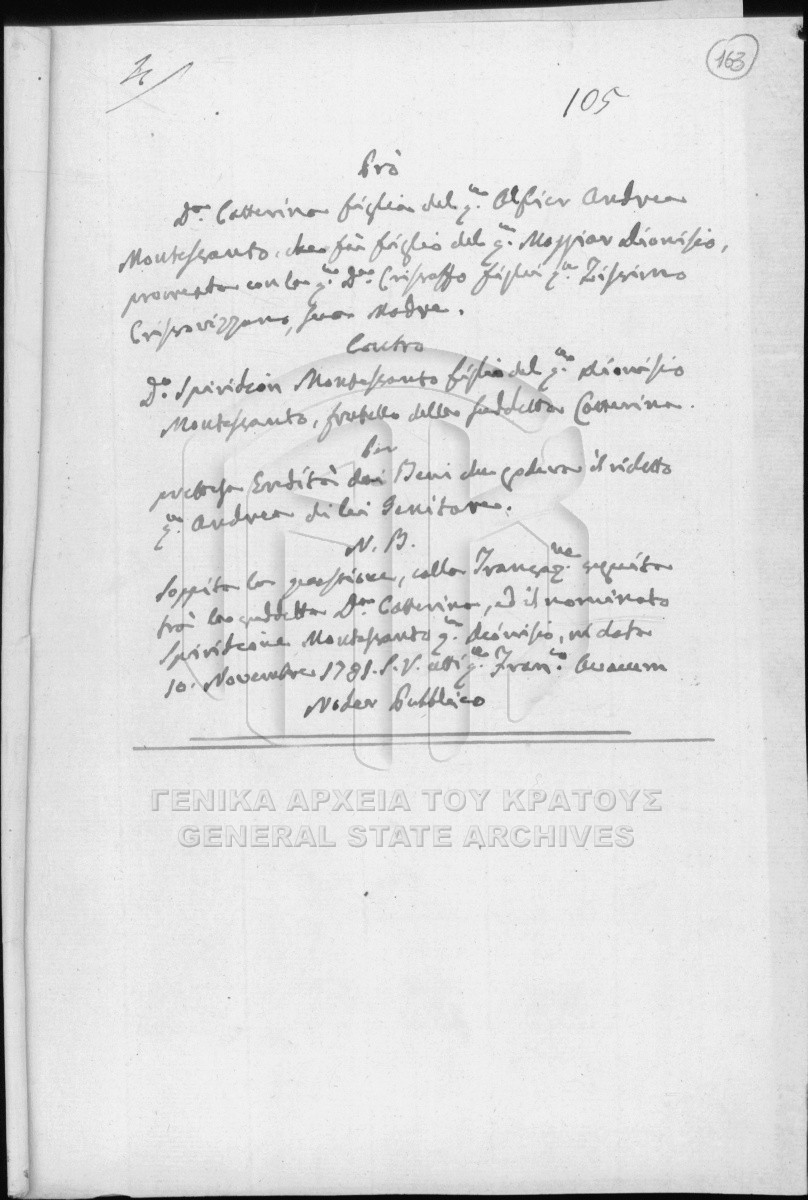 163
105
Prò
D.na Catterina figlia del q.m Alfier Andrea
Montessanto, che fù figlio del q.m Dionisio,
con la q.m D.na figlia q.m
sua Madre.
Contro
D.n Spiridion Montessanto figlio del q.m Dionisio
Montessanto, fratello della suddetta Catterina.
Per
pretesa Eredità dei Beni che godeva il ridetto
q.m Andrea di lei Genitore.
N. B.
Soppita la questione, colla Transaz.ne seguita
trà la suddetta D.na Catterina, ed il nominato
Spiridione Montessanto q.m Dionisio, in data
10. Novembre 1781. S. V. atti q.m Fran.co Avacum
Noder Pubblico
ΓΕΝΙΚΑ ΑΡΧΕΙΑ ΤΟΥ ΚΡΑΤΟΥΣ
GENERAL STATE ARCHIVES